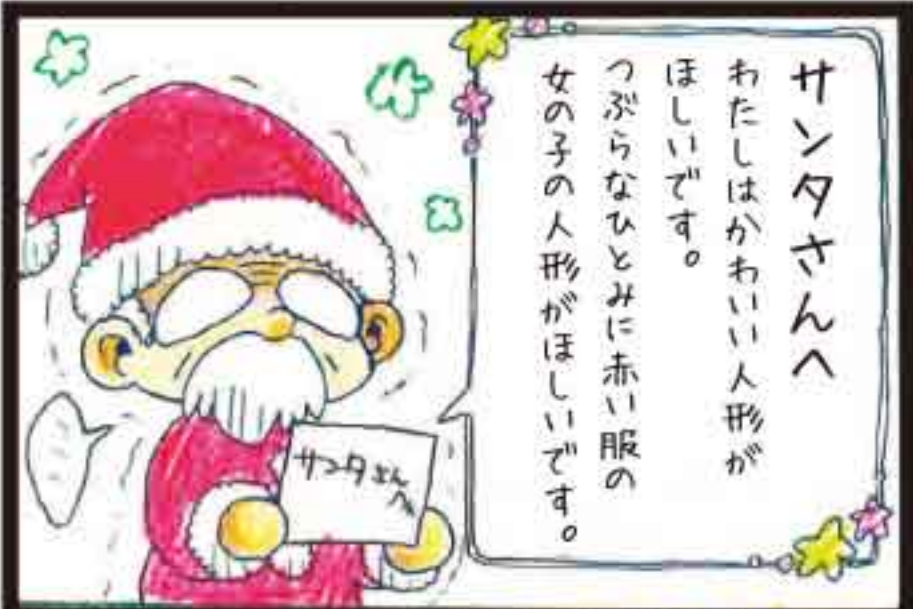 サンタさんへ
わたしはかわいい人形が
ほしいです。
つぶらなひとみに赤い服の
女の子の人形がほしいです。
サンタさん
へ